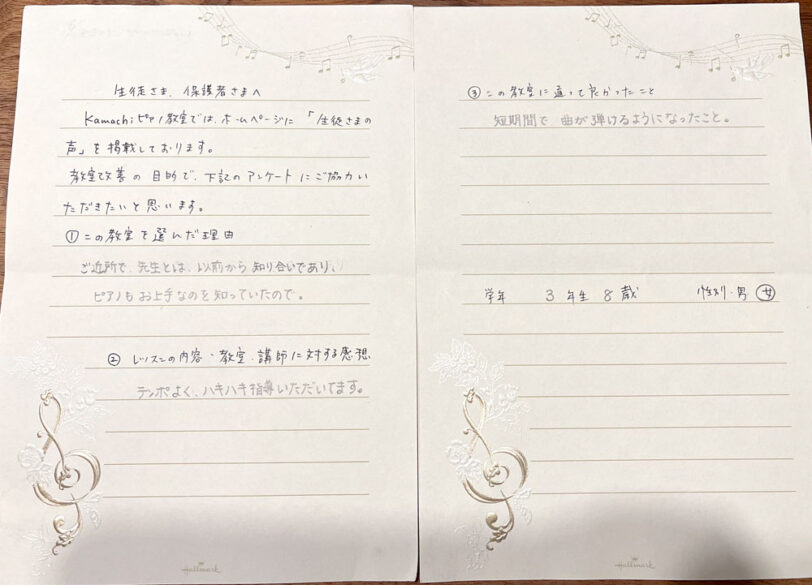 生徒さま、保護者さまへ
Kamachiピアノ教室では、ホームページに「生徒さまの
声」を掲載しております。
教室改善の目的で、下記のアンケートにご協力い
ただきたいと思います。
①この教室を選んだ理由
ご近所で、先生とは、以前から知り合いであり、
ピアノもお上手なのを知っていたので。
② レッスンの内容・教室・講師に対する感想
テンポよく、ハキハキ指導いただいてます。
Hallmark
③この教室に通って良かったこと
短期間で、曲が弾けるようになったこと。
学年 3年生 8歳 性別・男 女
Hallmark